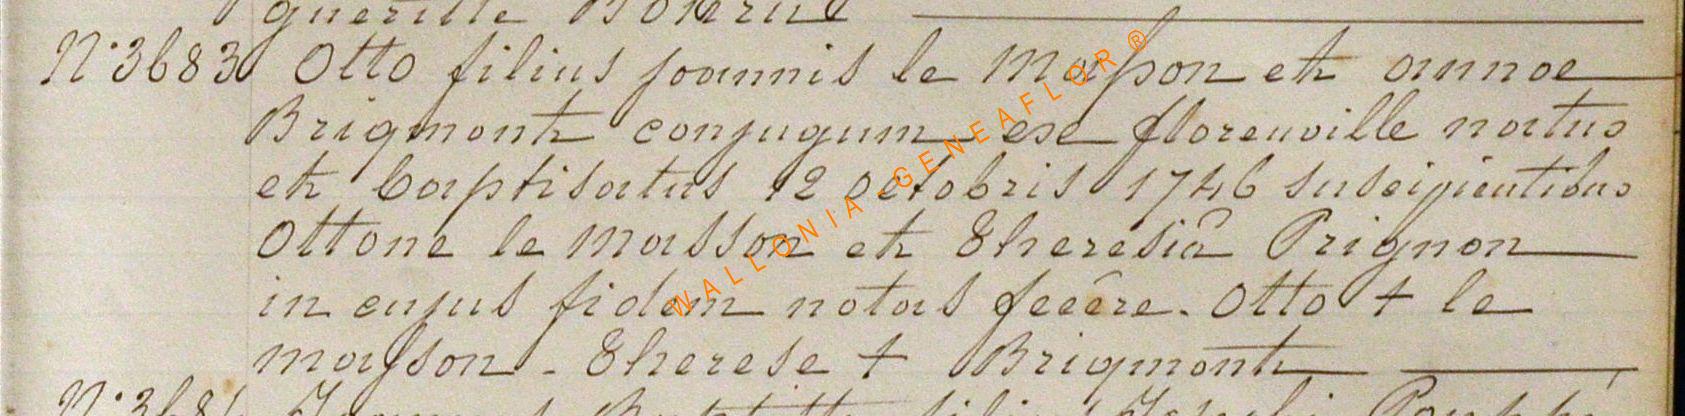 N°3683 Otto filius joannis le Masson et annae
Brigmont conjugum ex florenville natus
et baptisatus 12 octobris 1746 suscipientibus
Ottone le masson et Theresiâ Prignon
in cujus fidem notas fecêre. Otto + le
masson - Therese + Brigmont
WALLONIA-GENEAFLOR®